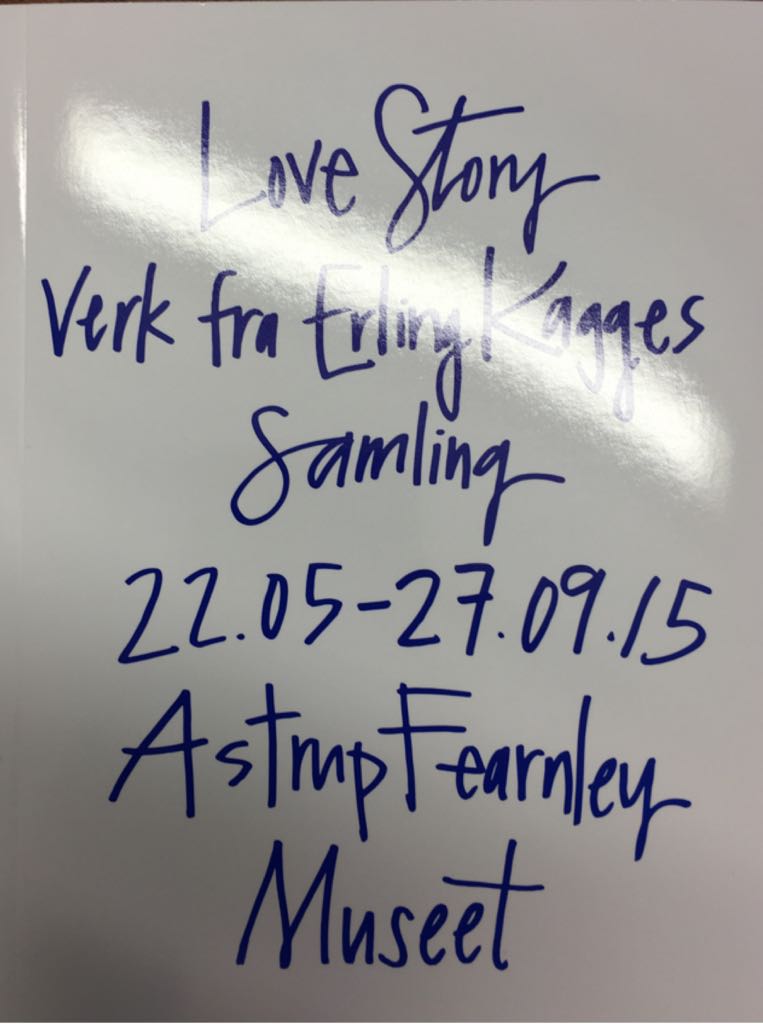 Love Story
Verk fra Erling Kagges
Samling
22.05-27.09.15
Astrup Fearnley
Museet